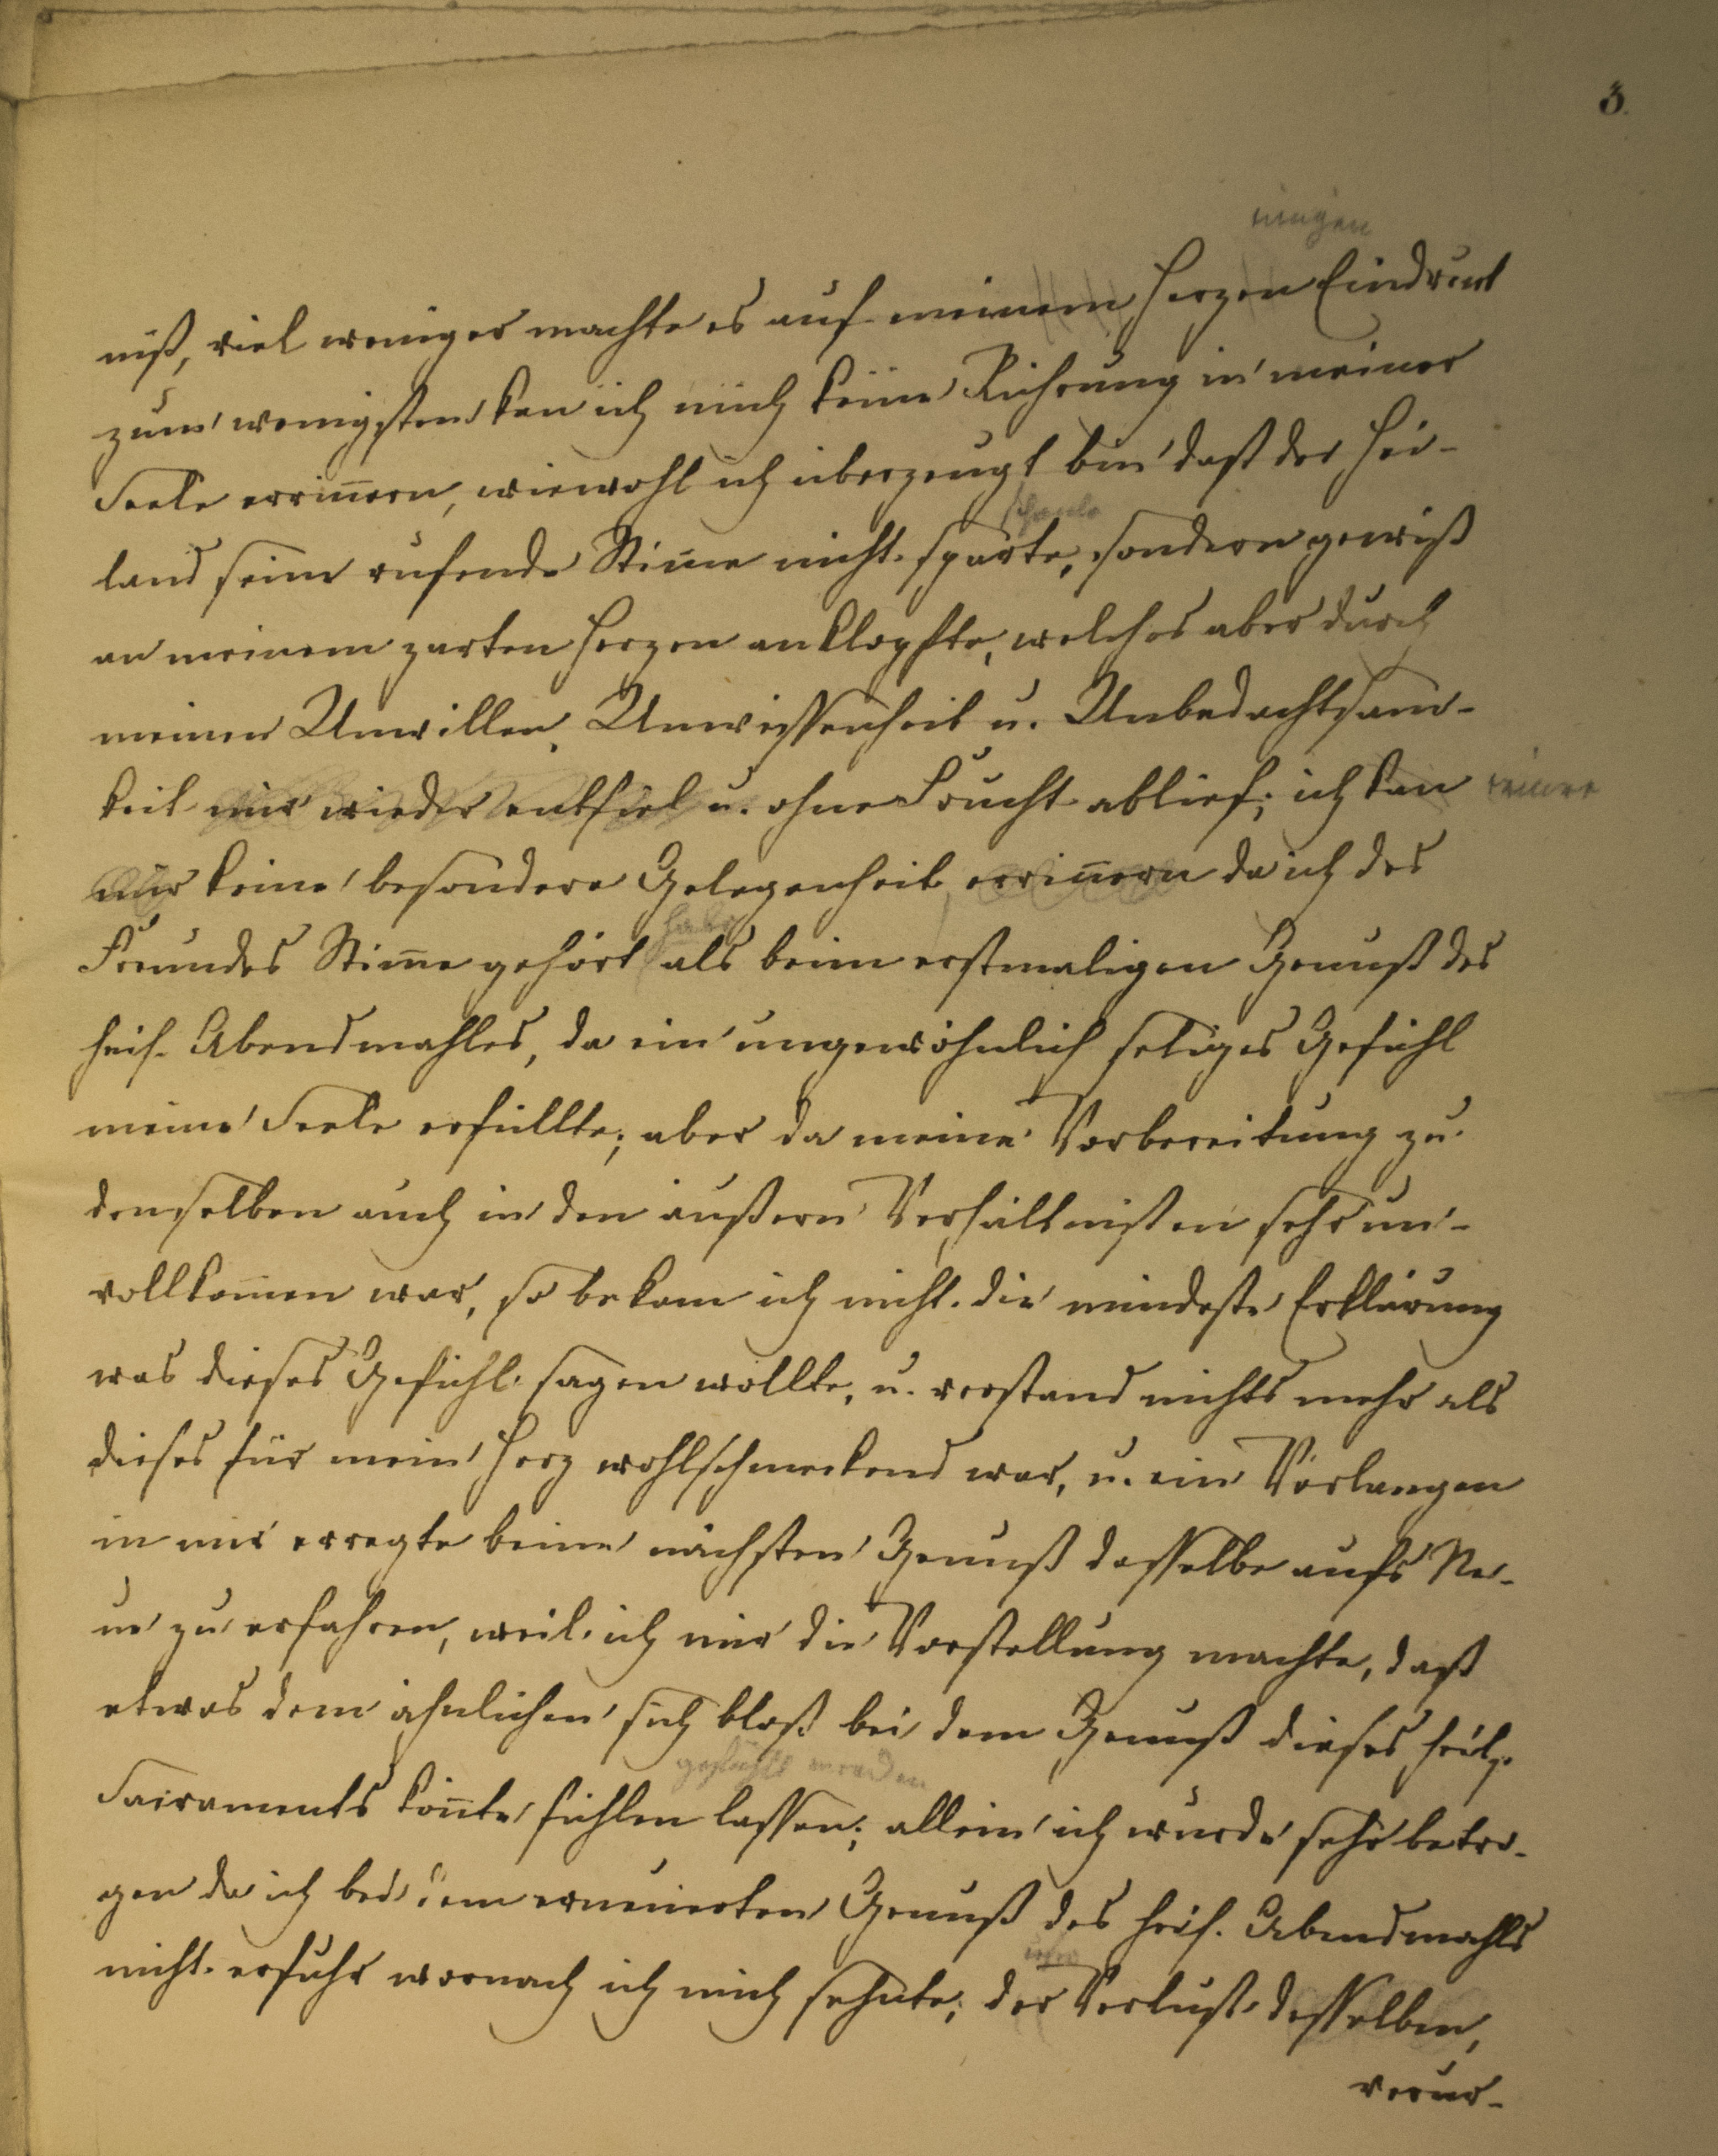 3.
einigen
niß, viel weniger machte es auf meinem Herzen Eindruck
zum wenigsten kan ich mich keine Rührung in meiner
Seele errin̅ern, wiewohl ich überzeugt bin daß der Hei-
schonte
land seine rufende Stim̅e nicht sparte, sondern gewiß
an meinem zarten Herzen anklopfte, welches aber durch
meinen Unwillen, Unwissenheit u. Unbedachtsam-
keit mir wieder entfiel u. ohne Frucht ablief; ich kan
mir keine besondere Gelegenheit errin̅ern da ich des
habe
Freundes Stim̅e gehört als beim erstmaligen Genuß des
heil. Abendmahles, da ein ungewöhnlich seliges Gefühl
meine Seele erfüllte; aber da meine Vorbereitung zu
demselben auch in den äußern Verhältnißen sehr un-
vollkom̅en war, so bekam ich nicht die mindeste Erklärung
was dieses Gefühl sagen wollte, u. verstand nichts mehr als
dieses für mein Herz wohlschmeckend war, u. ein Verlangen
in mir erregte beim nächsten Genuß dasselbe aufs Ne-
ue zu erfahren, weil ich mir die Vorstellung machte, daß
etwas dem ähnlichen sich bloß bei dem Genuß dieses heil.
gefühlt werden
Sacraments kön̅te fühlen lassen; allein ich wurde sehr betro-
gen da ich bei dem erneuerten Genuß des heil. Abendmahls
nicht erfuhr wornach ich mich sehnte; der Verlust desselben,
verur-